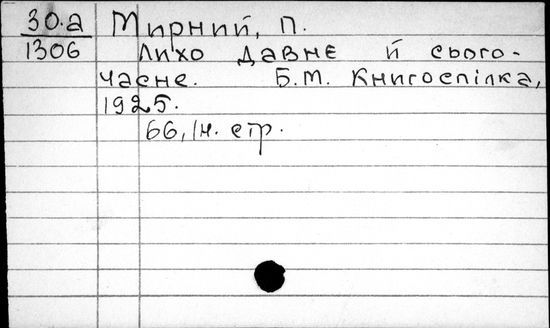 30.а Мирний, П.
1306 Лихо давнє й сього-
часне. Б.М. Книгоспілка,
1925.
66, Ін. стр.